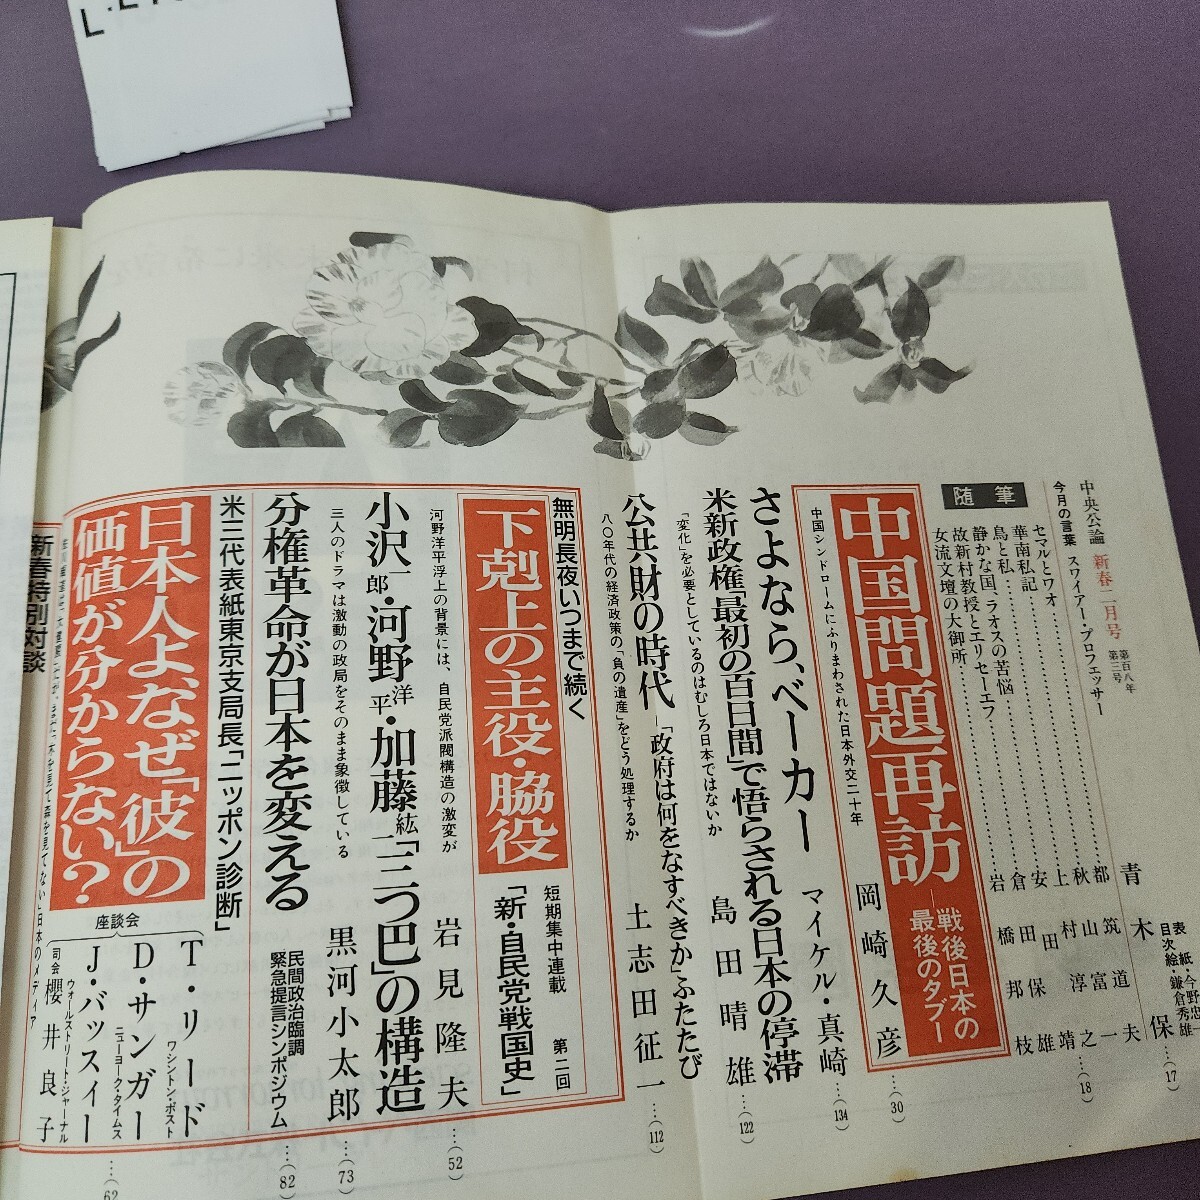 中央公論 新春二月号 第百八年 第三号
表紙・今野忠一
目次絵・鎌倉秀雄
今月の言葉 スワイアー・プロフェッサー 青木 保…(17)
随筆
セマルとワオ
華南私記
鳥と私
静かな国、ラオスの苦悩
故新村教授とエリセーエフ
女流文壇の大御所
…(18)
中国問題再訪
―戦後日本の最後のタブー
中国シンドロームにふりまわされた日本外交二十年
岡崎久彦…(30)
さよなら、ベーカー マイケル・真崎…(134)
米新政権「最初の百日間」で悟らされる日本の停滞
「変化」を必要としているのはむしろ日本ではないか
島田晴雄…(122)
公共財の時代―「政府は何をなすべきか」ふたたび
八〇年代の経済政策の「負の遺産」をどう処理するか
土志田征一…(112)
無明長夜いつまで続く
下剋上の主役・脇役
短期集中連載 第二回
「新・自民党戦国史」
河野洋平浮上の背景には、自民党派閥構造の激変が
岩見隆夫…(52)
小沢一郎・河野洋平・加藤紘一「三つ巴」の構造
三人のドラマは激動の政局をそのまま象徴している
黒河小太郎…(73)
分権革命が日本を変える
民間政治臨調
緊急提言シンポジウム…(82)
米三代表紙東京支局長「ニッポン診断」
日本人よ、なぜ「彼」の
価値が分からない?
座談会
T・リード
ワシントン・ポスト
D・サンガー
ニューヨーク・タイムス
J・バッスィー
ウォールストリート・ジャーナル
司会 櫻井良子
…(62
木を見て森を見てない日本のメディア
新春特別対談